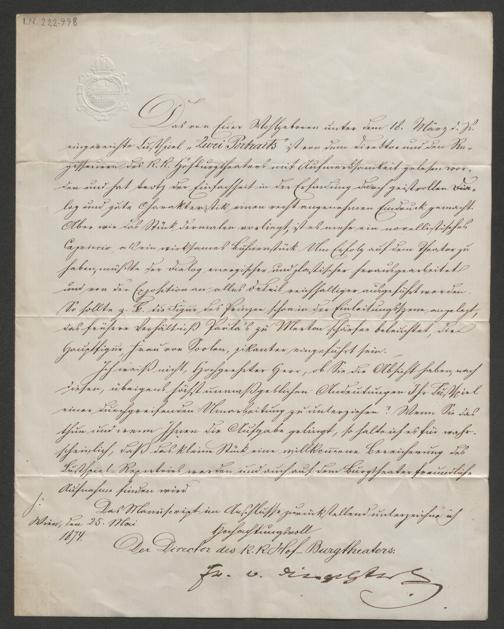 I.N. 222.998
Das von Euer Wohlgeboren unter dem 18. März d. J.
eingereichte Lustspiel „Zwei Portraits" ist von dem Direktor und den Re-
gisseuren des k. k. Hofburgtheaters mit Aufmerksamkeit gelesen wor-
den und hat trotz der Einfachheit in der Erfindung durch geistvollen Dia-
log und gute Charakteristik einen recht angenehmen Eindruck gemacht.
Aber wie das Stück dermalen vorliegt, ist es mehr ein novellistisches
Capriccio, als ein wirksames Bühnenstück. Um Erfolg auf dem Theater zu
haben, müßte der Dialog energischer und plastischer herausgearbeitet
und von der Exposition an alles Detail reichhaltiger ausgeführt werden.
So sollte z. B. die Figur des Prinzen schon in der Einleitungsszene angelegt,
das frühere Verhältniß zu schärfer beleuchtet, die
Hauptfigur, Frau von pikanter eingeführt sein.
Ich weiß nicht, Hochgeehrter Herr, ob Sie die Absicht haben, nach
diesen, übrigens höchst unmaßgeblichen Andeutungen Ihr Lustspiel
einer durchgreifenden Umarbeitung zu unterziehen? Wenn Sie das
thun und wenn Ihnen die Aufgabe gelingt, so halte ich es für wahr-
scheinlich, daß das kleine Stück eine willkommene Bereicherung des
Lustspiel-Repertoirs werden und auch auf dem Burgtheater freundliche
Aufnahme finden wird.
Das Manuscript im Anschlusse zurückstellend unterzeichne ich
Wien, den 25. Mai
1874.
Hochachtungsvoll
Der Director des k. k. Hof-Burgtheaters:
Fr. v. Dingelstedt